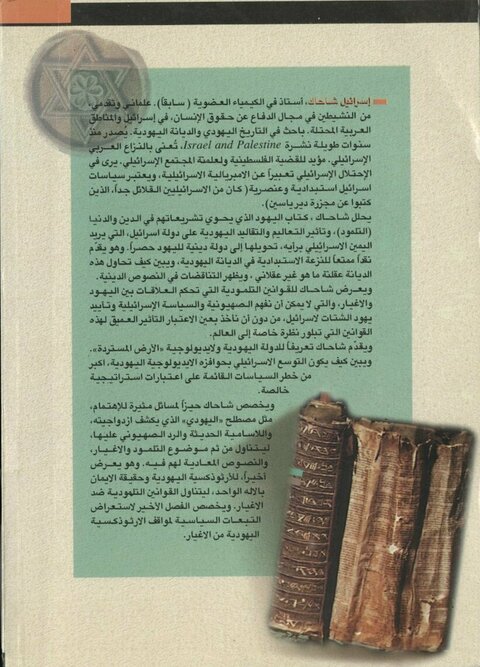 إسرائيل شاحاك، أستاذ في الكيمياء العضوية (سابقاً). علماني وتقدمي،
من النشيطين في مجال الدفاع عن حقوق الإنسان، في إسرائيل والمناطق
العربية المحتلة. باحث في التاريخ اليهودي والديانة اليهودية. يُصدر منذ
سنوات طويلة نشرة Israel and Palestine، تُعنى بالنزاع العربي
الإسرائيلي. مؤيد للقضية الفلسطينية ولعلمنة المجتمع الإسرائيلي. يرى في
الإحتلال الإسرائيلي تعبيراً عن الامبريالية الاسرائيلية، ويعتبر سياسات
اسرائيل استبدادية وعنصرية (كان من الاسرائيليين القلائل جداً، الذين
كتبوا عن مجزرة دير ياسين).
يحلل شاحاك، كتاب اليهود الذي يحوي تشريعاتهم في الدين والدنيا
(التلمود)، وتأثير التعاليم والتقاليد اليهودية على دولة اسرائيل، التي يريد
اليمين الاسرائيلي برأيه، تحويلها إلى دولة دينية لليهود حصراً. وهو يقدّم
نقداً ممتعاً للنزعة الاستبدادية في الديانة اليهودية، ويبين كيف تحاول هذه
الديانة عقلنة ما هو غير عقلاني، ويظهر التناقضات في النصوص الدينية.
ويعرض شاحاك للقوانين التلمودية التي تحكم العلاقات بين اليهود
والاغيار، والتي لا يمكن أن نفهم الصهيونية والسياسة الإسرائيلية وتأييد
يهود الشتات لاسرائيل، من دون أن نأخذ بعين الاعتبار التأثير العميق لهذه
القوانين التي تبلور نظرة خاصة إلى العالم.
ويقدّم شاحاك تعريفاً للدولة اليهودية ولايديولوجية «الارض المستردة».
ويبين كيف يكون التوسع الاسرائيلي بحوافزه الايديولوجية اليهودية، اكبر
من خطر السياسات القائمة على اعتبارات استراتيجية
خالصة.
ويخصص شاحاك حيزاً لمسائل مثيرة للإهتمام،
مثل مصطلح «اليهودي» الذي يكشف ازدواجيته،
واللاسامية الحديثة والرد الصهيوني عليها،
ليتناول من ثم موضوع التلمود والاغيار،
والنصوص المعادية لهم فيه. وهو يعرض
أخيراً، للأرثوذكسية اليهودية وحقيقة الايمان
بالاله الواحد، ليتناول القوانين التلمودية ضد
الاغيار. ويخصص الفصل الاخير لاستعراض
التبعات السياسية لمواقف الارثوذكسية
اليهودية من الاغيار.